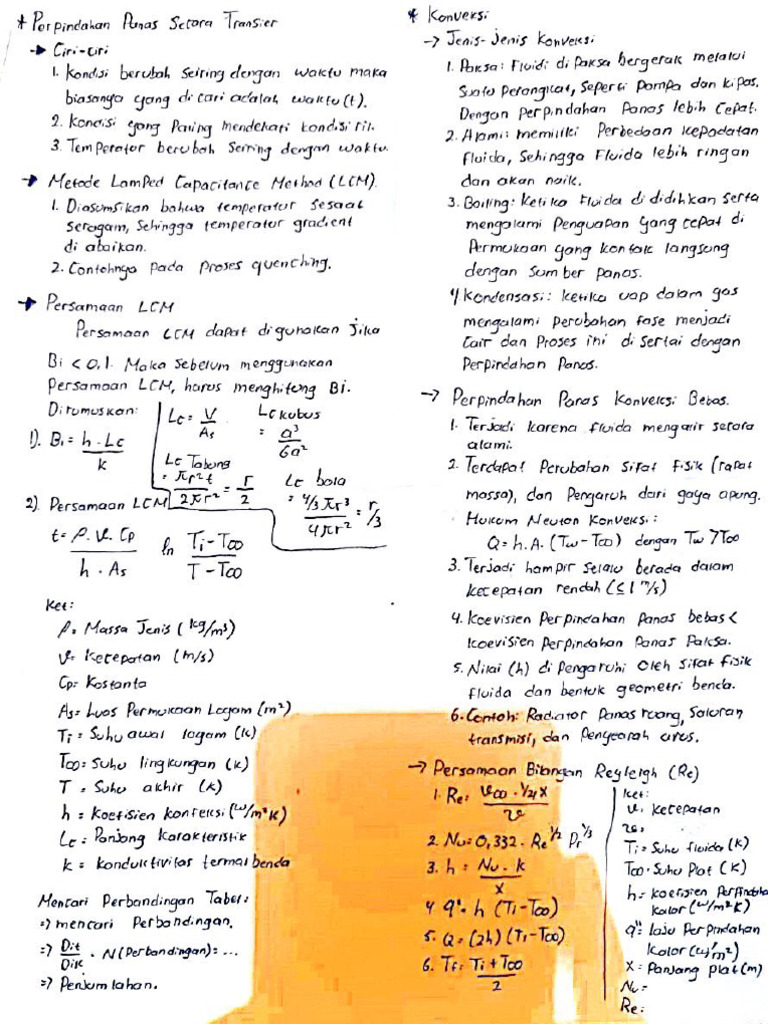 * Perpindahan Panas Secara Transier
→ Ciri-ciri
1. Kondisi berubah seiring dengan waktu maka
biasanya yang di cari adalah waktu (t).
2. Kondisi yang Paring mendekati kondisi ril.
3. Temperator berubah seiring dengan waktu.
→ Metode Lamped Capacitance Method (LCM).
1. Diasumsikan bahwa temperatur sesaat
seragam, sehingga temperatur gradient
di abaikan.
2. Contohnya pada proses quenching.
→ Persamaan LCM
Persamaan LCM dapat digunakan jika
Bi < 0,1. Maka sebelum menggunakan
Persamaan LCM, harus menghitung Bi.
Dirumuskan:
1). Bi = h . Lc / k
Lc = V / As
Lc kubus = a³ / 6a²
Lc Tabung = πr²t / 2πr² = r / 2
Lc bola = 4/3 πr³ / 4πr² = r/3
2) Persamaan LCM
t = ρ . V . Cp / h . As ln Ti - T∞ / T - T∞
Ket:
ρ = Massa Jenis (kg/m³)
V = Kecepatan (m/s)
Cp = Kostanta
As = Luas Permukaan Logam (m²)
Ti = Suhu awal logam (k)
T∞ = Suhu lingkungan (k)
T = Suhu akhir (k)
h = Koefisien konfeksi (w/m²k)
Lc = Panjang Karakteristik
k = konduktivitas termal benda
Mencari Perbandingan Tabel:
=> mencari Perbandingan.
=> Dit / Dik . N (Perbandingan) = ...
=> Penjumlahan.
* Konveksi
→ Jenis-jenis Konveksi
1. Paksa: Fluidi di Paksa bergerak melalui
Suatu Perangkat, Seperti Pompa dan Kipas.
Dengan Perpindahan Panas lebih Cepat.
2. Alami: memiliki Perbedaan Kepadatan
Fluida, Sehingga Fluida lebih ringan
dan akan naik.
3. Boiling: Ketika Fluida di didihkan serta
mengalami Penguapan yang cepat di
Permukaan yang kontak langsung
dengan Sumber Panas.
4 Kondensasi: ketika uap dalam gas
mengalami Perubahan fase menjadi
Cair dan Proses ini di Sertai dengan
Perpindahan Panas.
→ Perpindahan Panas Konveksi Bebas.
1. Terjadi karena fluida mengalir secara
alami.
2. Terdapat Perubahan Sifat Fisik (rapat
massa), dan Pengaruh dari gaya apung.
Hukum Neuton Konveksi:
Q = h.A. (Tw - T∞) dengan Tw > T∞
3. Terjadi hampir selalu berada dalam
kecepatan rendah (≤ 1 m/s)
4. Koevisien Perpindahan Panas bebas <
Koevisien Perpindahan Panas Paksa.
5. Nilai (h) di pengaruhi oleh sifat fisik
fluida dan bentuk geometri benda.
6. Contoh: Radiator Panas ruang, Saluran
transmisi, dan Penyearah arus.
→ Persamaan Bilangan Reyleigh (Re)
1. Re =
2. Nu = 0,332 . Re^1/2 Pr^1/3
3. h = Nu . k / x
4 q" = h (Ti - T∞)
5. Q = (2h) (Ti - T∞)
6. Tf = Ti + T∞ / 2
Ket:
V = Kecepatan
Ti = Suhu fluida (k)
T∞ = Suhu Plat (k)
h = koefisien Perpindahan
Kalor (w/m²k)
q" = laju Perpindahan
Kalor (w/m²)
X = Panjang Plat (m)
Nu =
Re =